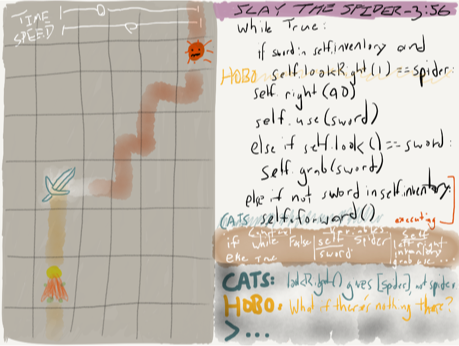 TIME
SPEED
SLAY THE SPIDER-3:56
While True:
if sword in self.inventory and
HOBO self.lookRight(1)==spider:
self.right(90)
self.use(sword)
else if self.look()==sword:
self.grab(sword)
else if not sword in self.inventory:
CATS self.forward()
executing
Control Variables self
if While False self Spider left right
else True sword inventory
grab use ...
CATS: lookRight() gives [spider], not spider
HOBO: What if there's nothing there?
>...